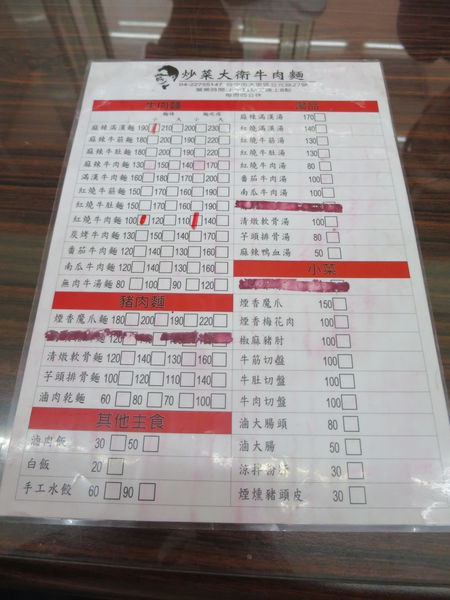 炒菜大衛牛肉麵
04-22755147
每週四公休
牛肉麵
湯品
麻辣滿漢麵 190 210 200 230
麻辣牛筋麵 180 200 190 220
麻辣牛肚麵 180 200 190 220
麻辣牛肉麵 130 150 140 170
滿漢牛肉麵 160 180 170 200
紅燒牛筋麵 150 170 160 190
紅燒牛肚麵 150 170 160 190
紅燒牛肉麵 100 120 110 140
炭烤牛肉麵 130 150 140 170
番茄牛肉麵 120 140 130 160
南瓜牛肉麵 120 140 130 160
無肉牛湯麵 80 100 90 120
麻辣滿漢湯 170
紅燒滿漢湯 140
紅燒牛筋湯 130
紅燒牛肚湯 130
紅燒牛肉湯 80
番茄牛肉湯 100
南瓜牛肉湯 100
清燉軟骨湯 100
芋頭排骨湯 80
麻辣鴨血湯 50
豬肉麵
煙香魔爪麵 180 200 190 220
清燉軟骨麵 120 140 130 160
芋頭排骨麵 100 120 110 140
滷肉乾麵 60 80 70 100
其他主食
滷肉飯 30 50
白飯 20
手工水餃 60 90
小菜
煙香魔爪 150
煙香梅花肉 100
椒麻豬肘 100
牛筋切盤 100
牛肚切盤 100
牛肉切盤 100
滷大腸頭 80
滷大腸 50
涼拌粉條 30
煙燻豬頭皮 30